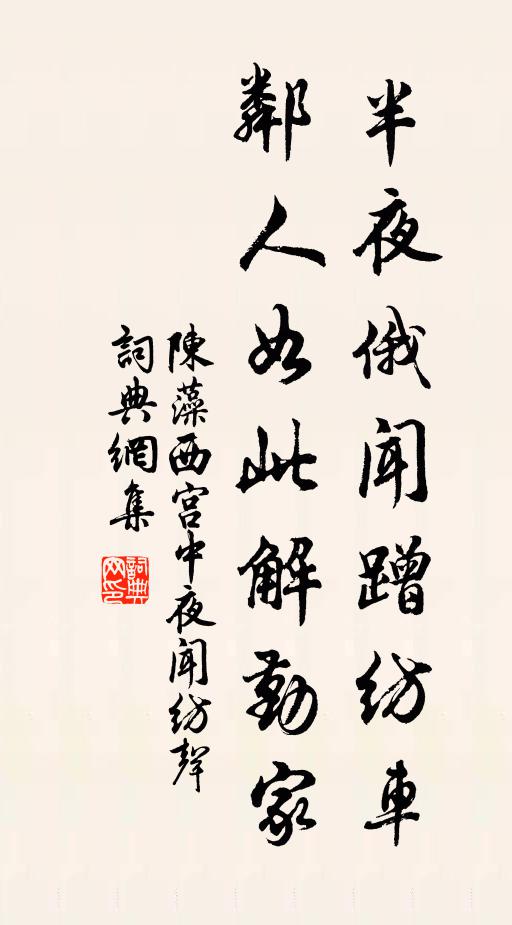 半夜俄聞蹭紡車
鄰人如此解勤家
陳藻西宫中夜聞紡聲
詞典網集
詞典网印